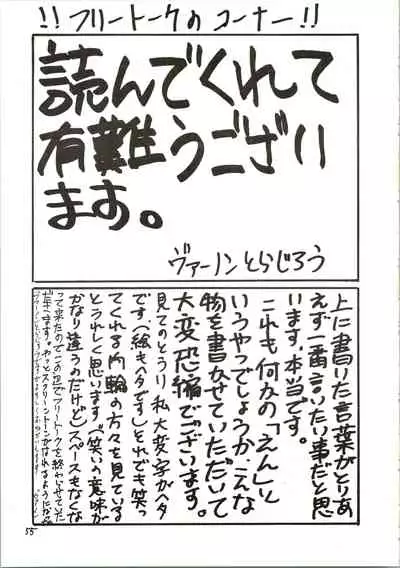 !!フリートークのコーナー!!
読んでくれて
有難うござい
ます。
ヴァーノンとらじろう
上に書いた言葉がとりあ
えず一番言いたい事だと思
います。本当です。
これも何かの「えん」と
いうやつでしょうか、こんな
物を書かせていただいて
大変恐縮でございます。
見てのとうり私、大変、字がヘタ
です。(絵もヘタです)それでも笑っ
てくれる内輪の方々を見ている
とうれしく思います。(笑いの意味が
かなり違うのだけど)スペースもなくな
って来たのでこの辺でフリートークを終わらせていた
だきます。やっとスクリーントーンがはれるようになった
55